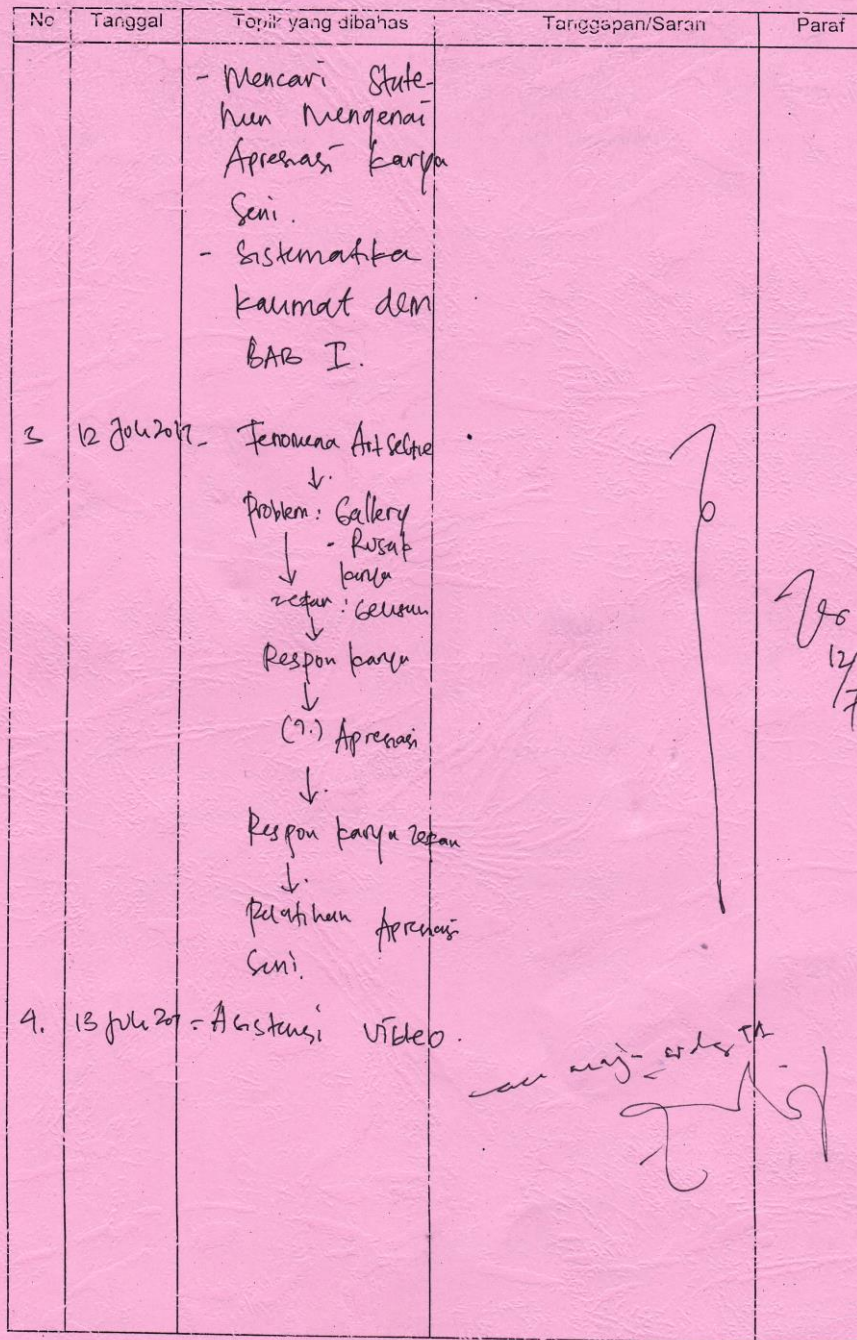 No Tanggal Topik yang dibahas Tanggapan/Saran Paraf
- Mencari State-
men Mengenai
Apresiasi karya
Seni.
- Sistematika
kalimat dlm
BAB I.
3 12 Juli 2017 - Fenomena Art Selfie
↓
Problem: Gallery
- Rusak
↓ karya
:
↓
Respon karya
↓
(?.) Apresiasi
↓
Respon karya
↓
Pelatihan Apresiasi
Seni.
4. 13 Juli 201 - Asistensi Video.
12/7